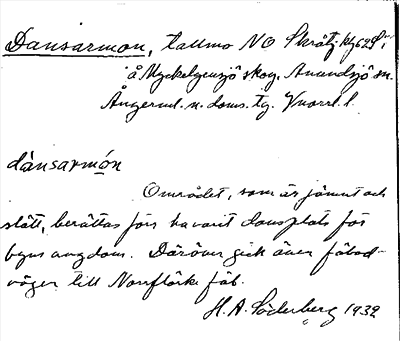 Dansarmon, tallmo NO Skråtj. kbl 62 S i,
å Myckelgensjö skog, Anundsjö sn.
Ångerml. n. doms. tg. Vnorrl. l.
dànsarmón
Området, som är jämnt och
slätt, berättas förr ha varit dansplats för
byns ungdom. Däröver gick även fäbod-
vägen till Norrflärke fäb.
H. A. Söderberg 1932